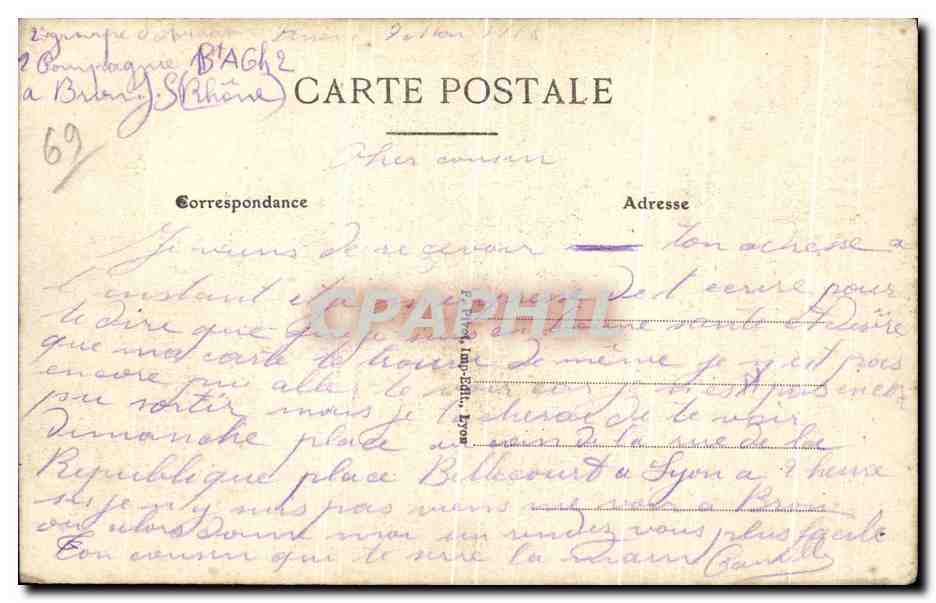 2e groupe d'aviation
2 Compagnie Bt AGh 2
a Bron (Rhône)
CARTE POSTALE
69
Cher cousin
Correspondance
Adresse
Je viens de recevoir ton adresse a
l'instant et de t ecrire pour
te dire que je suis en bonne santé et désire
que ma carte te trouve de même je n'est pas
encore pu aller te voir car je n'est pas encore
pu sortir mais je tacherai de te voir
Dimanche place au coin de la rue de la
Republique place Bellecourt a Lyon a 2 heure
si je n'y suis pas viens me voir a Bron
ou alors donne moi un rendez vous plus facile
Ton cousin qui te serre la main
P. Pivot, Imp-Edit., Lyon
CPAPHIL